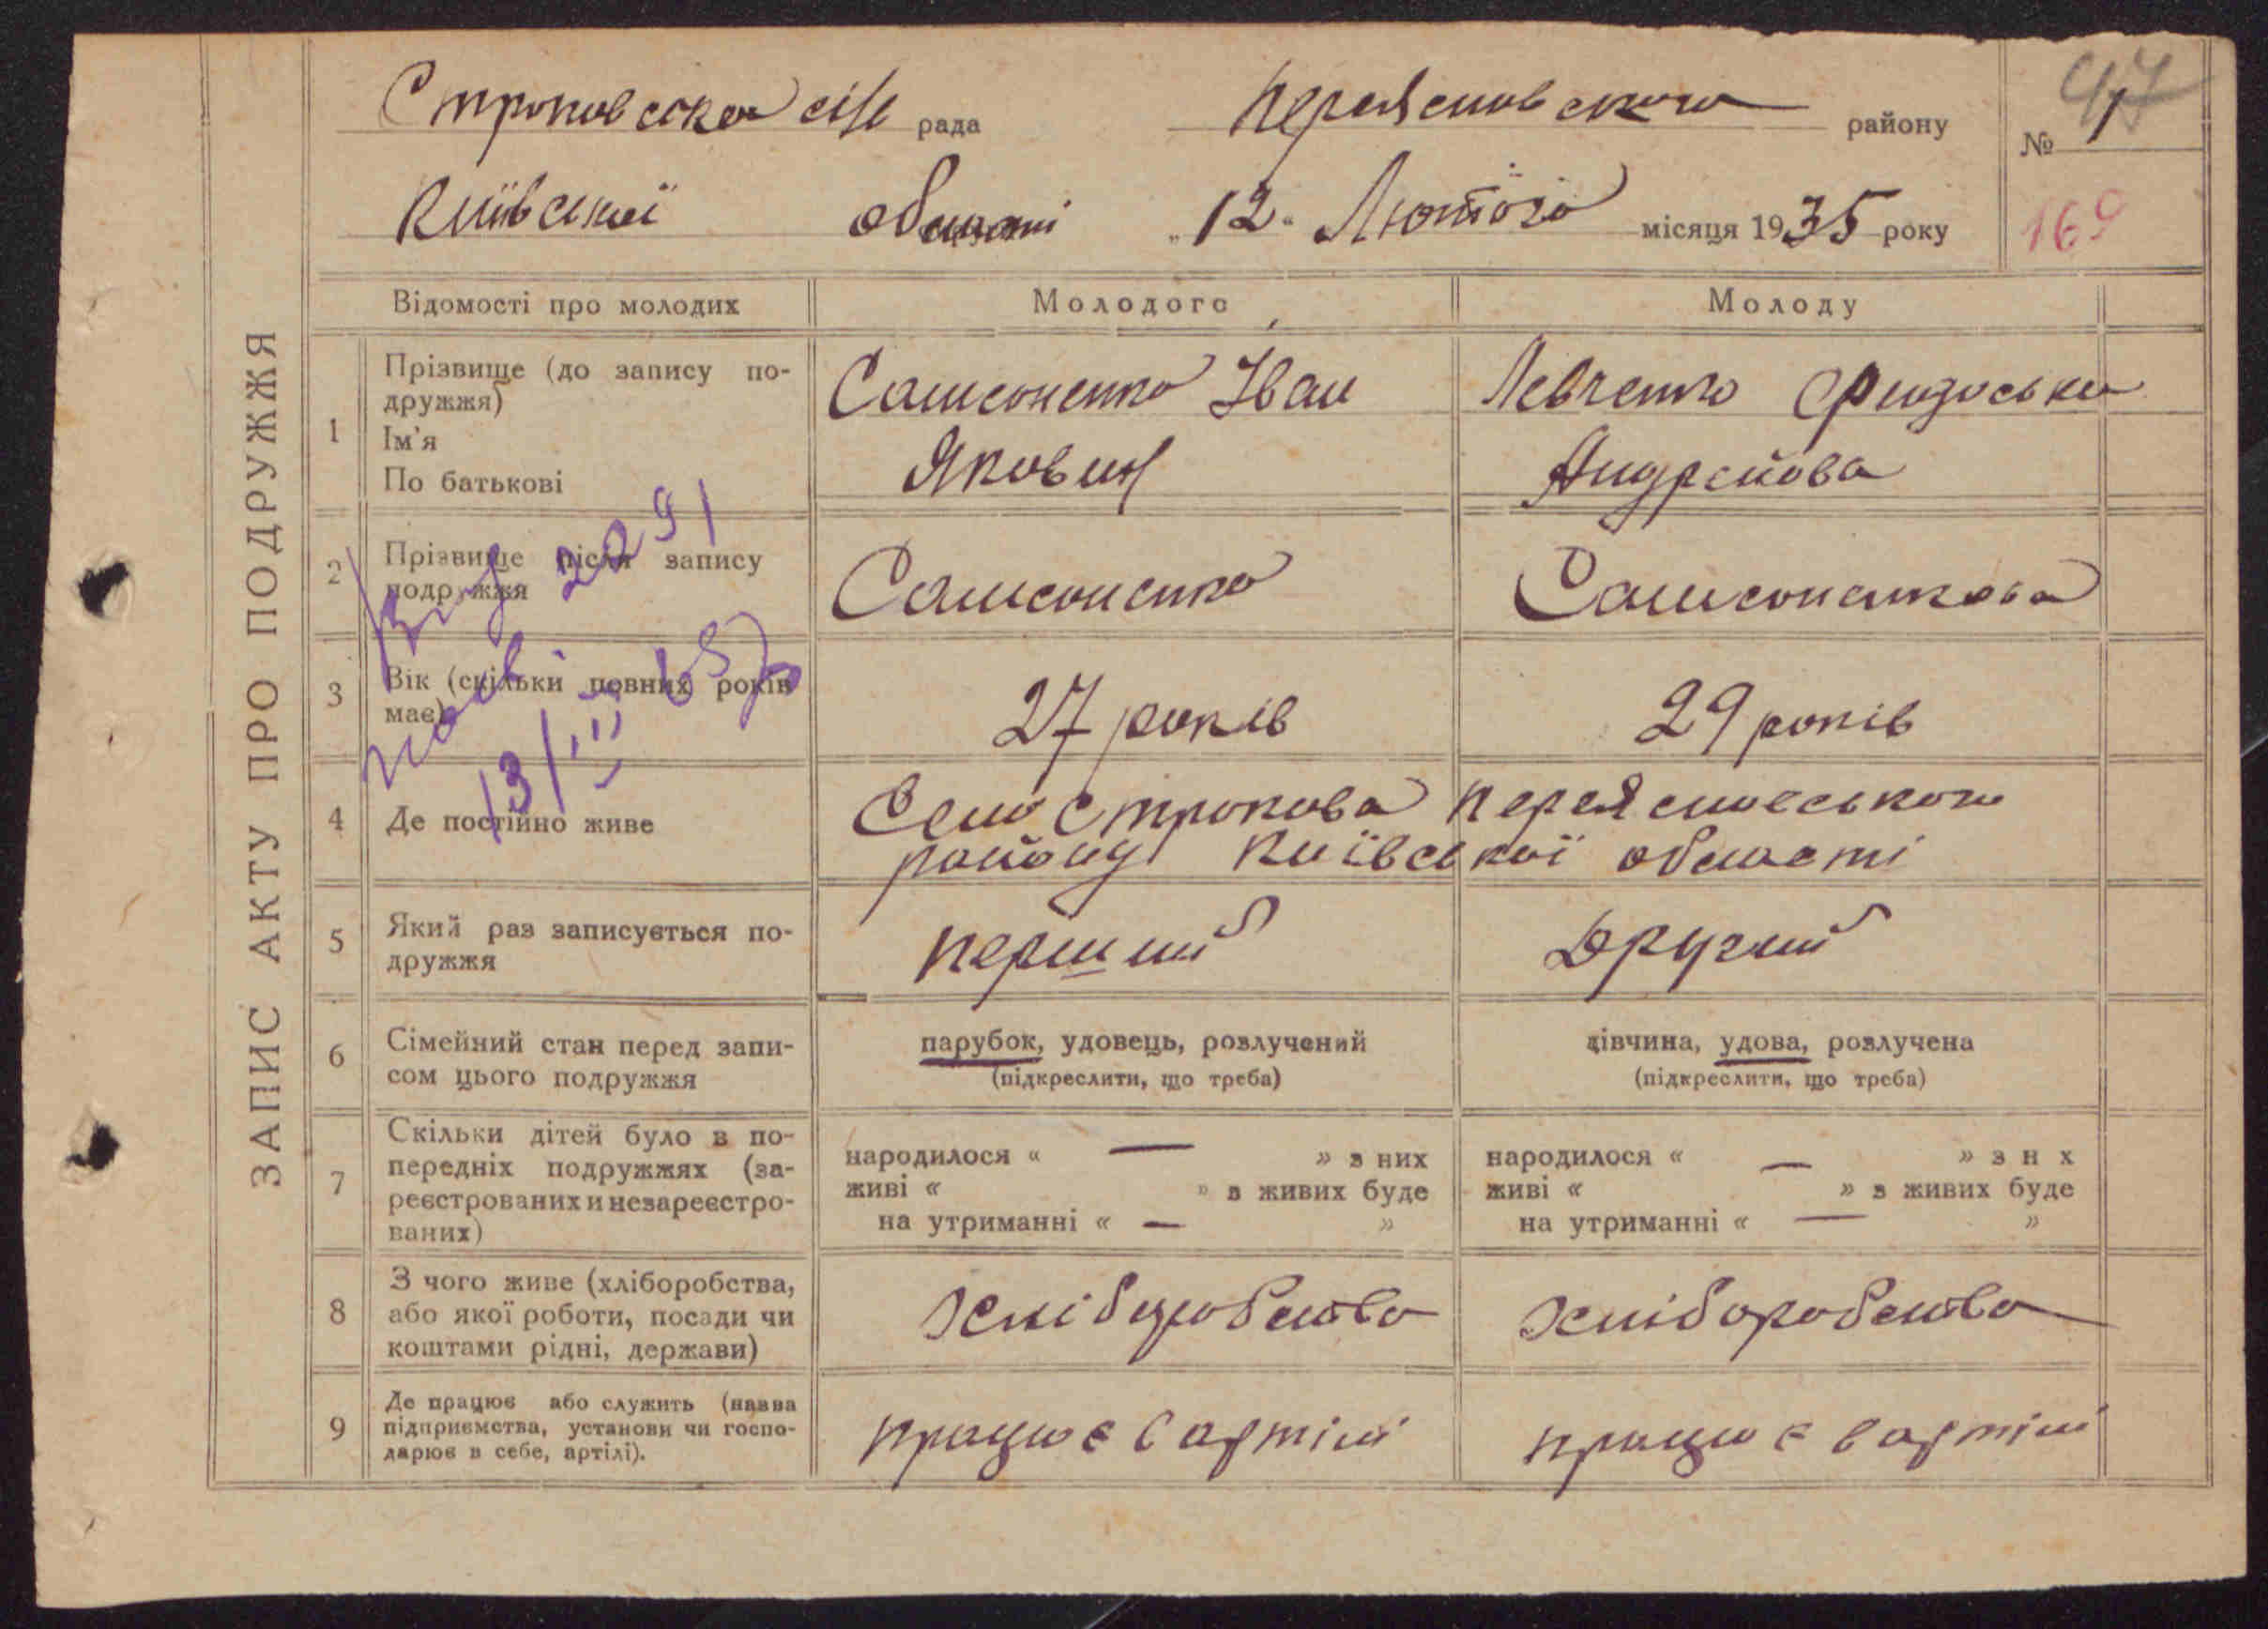 ЗАПИС АКТУ ПРО ПОДРУЖЖЯ
Строковська с/г рада Переяславського району № 1
47
Київської області „12“ Лютого місяця 1935 року
169
Відомості про молодих Молодого Молоду
1 Прізвище (до запису по-
дружжя)
Ім'я
По батькові
Самсоненко Іван
Якович
Левченко Феодоська
Андрейова
2 Прізвище після запису
подружжя
Самсоненко
Самсоненкова
3 Вік (скільки повних років
має)
27 років
29 років
2291
13/III
4 Де постійно живе
Село Строкова Переяславського
району Київської області
5 Який раз записується по-
дружжя
перший
Другий
6 Сімейний стан перед запи-
сом цього подружжя
парубок, удовець, розлучений
(підкреслити, що треба)
дівчина, удова, розлучена
(підкреслити, що треба)
7 Скільки дітей було в по-
передніх подружжях (за-
реєстрованих и незареєстро-
ваних)
народилося « — » з них
живі « » з живих буде
на утриманні « — »
народилося « — » з н х
живі « » з живих буде
на утриманні « — »
8 З чого живе (хліборобства,
або якої роботи, посади чи
коштами рідні, держави)
хліборобство
хліборобство
9 Де працює або служить (назва
підприємства, установи чи госпо-
дарює в себе, артілі).
працює в артілі
працює в артілі